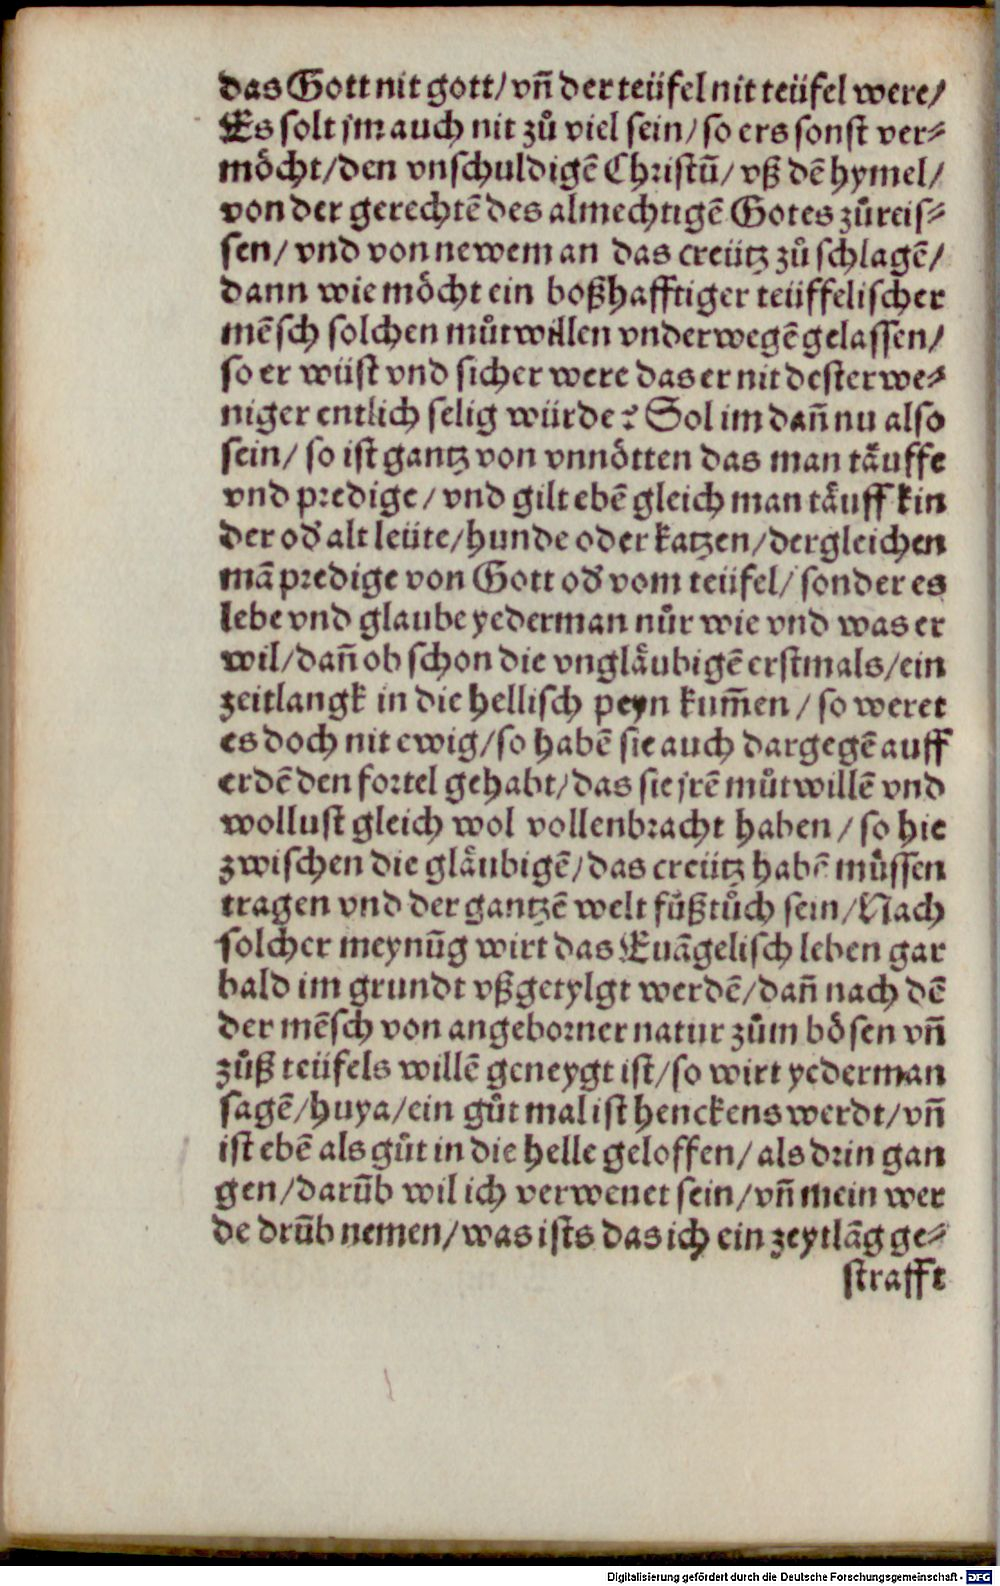 das Gott nit gott/ vñ der teüfel nit teüfel were/
Es solt jm auch nit zů viel sein/ so ers sonst ver⸗
möcht/den vnschuldigẽ Christũ/ vß dẽ hymel/
von der gerechtẽ des almechtigẽ Gotes zůreis⸗
sen/ vnd von newem an das creütz zů schlagẽ/
dann wie möcht ein boßhafftiger teüffelischer
mẽsch solchen můtwillen vnderwegẽ gelassen/
so er wüst vnd sicher were das er nit dester we⸗
niger entlich selig würde? Sol im dañ nu also
sein/ so ist gantz von vnnötten das man täuffe
vnd predige/ vnd gilt ebẽ gleich man täuff kin
der oď alt leüte/hunde oder katzen/dergleichen
mã predige von Gott oď vom teüfel/ sonder es
lebe vnd glaube yederman nůr wie vnd was er
wil/dañ ob schon die vngläubigẽ erstmals/ein
zeitlangk in die hellisch peyn kum̃en/ so weret
es doch nit ewig/so habẽ sie auch dargegẽ auff
erdẽ den fortel gehabt/das sie jrẽ můtwillẽ vnd
wollust gleich wol vollenbracht haben/ so hie
zwischen die gläubigẽ/das creütz habẽ müssen
tragen vnd der gantzẽ welt fůßtůch sein/Nach
solcher meynũg wirt das Euãgelisch leben gar
bald im grundt vßgetylgt werdẽ/dañ nach dẽ
der mẽsch von angeborner natur zům bösen vñ
zůß teüfels willẽ geneygt ist/so wirt yederman
sagẽ/huya/ein gůt mal ist henckens werdt/vñ
ist ebẽ als gůt in die helle geloffen/als drin gan
gen/darũb wil ich verwenet sein/vñ mein wer
de drũb nemen/was ists das ich ein zeytlãg ge⸗
strafft
Digitalisierung gefördert durch die Deutsche Forschungsgemeinschaft - DFG